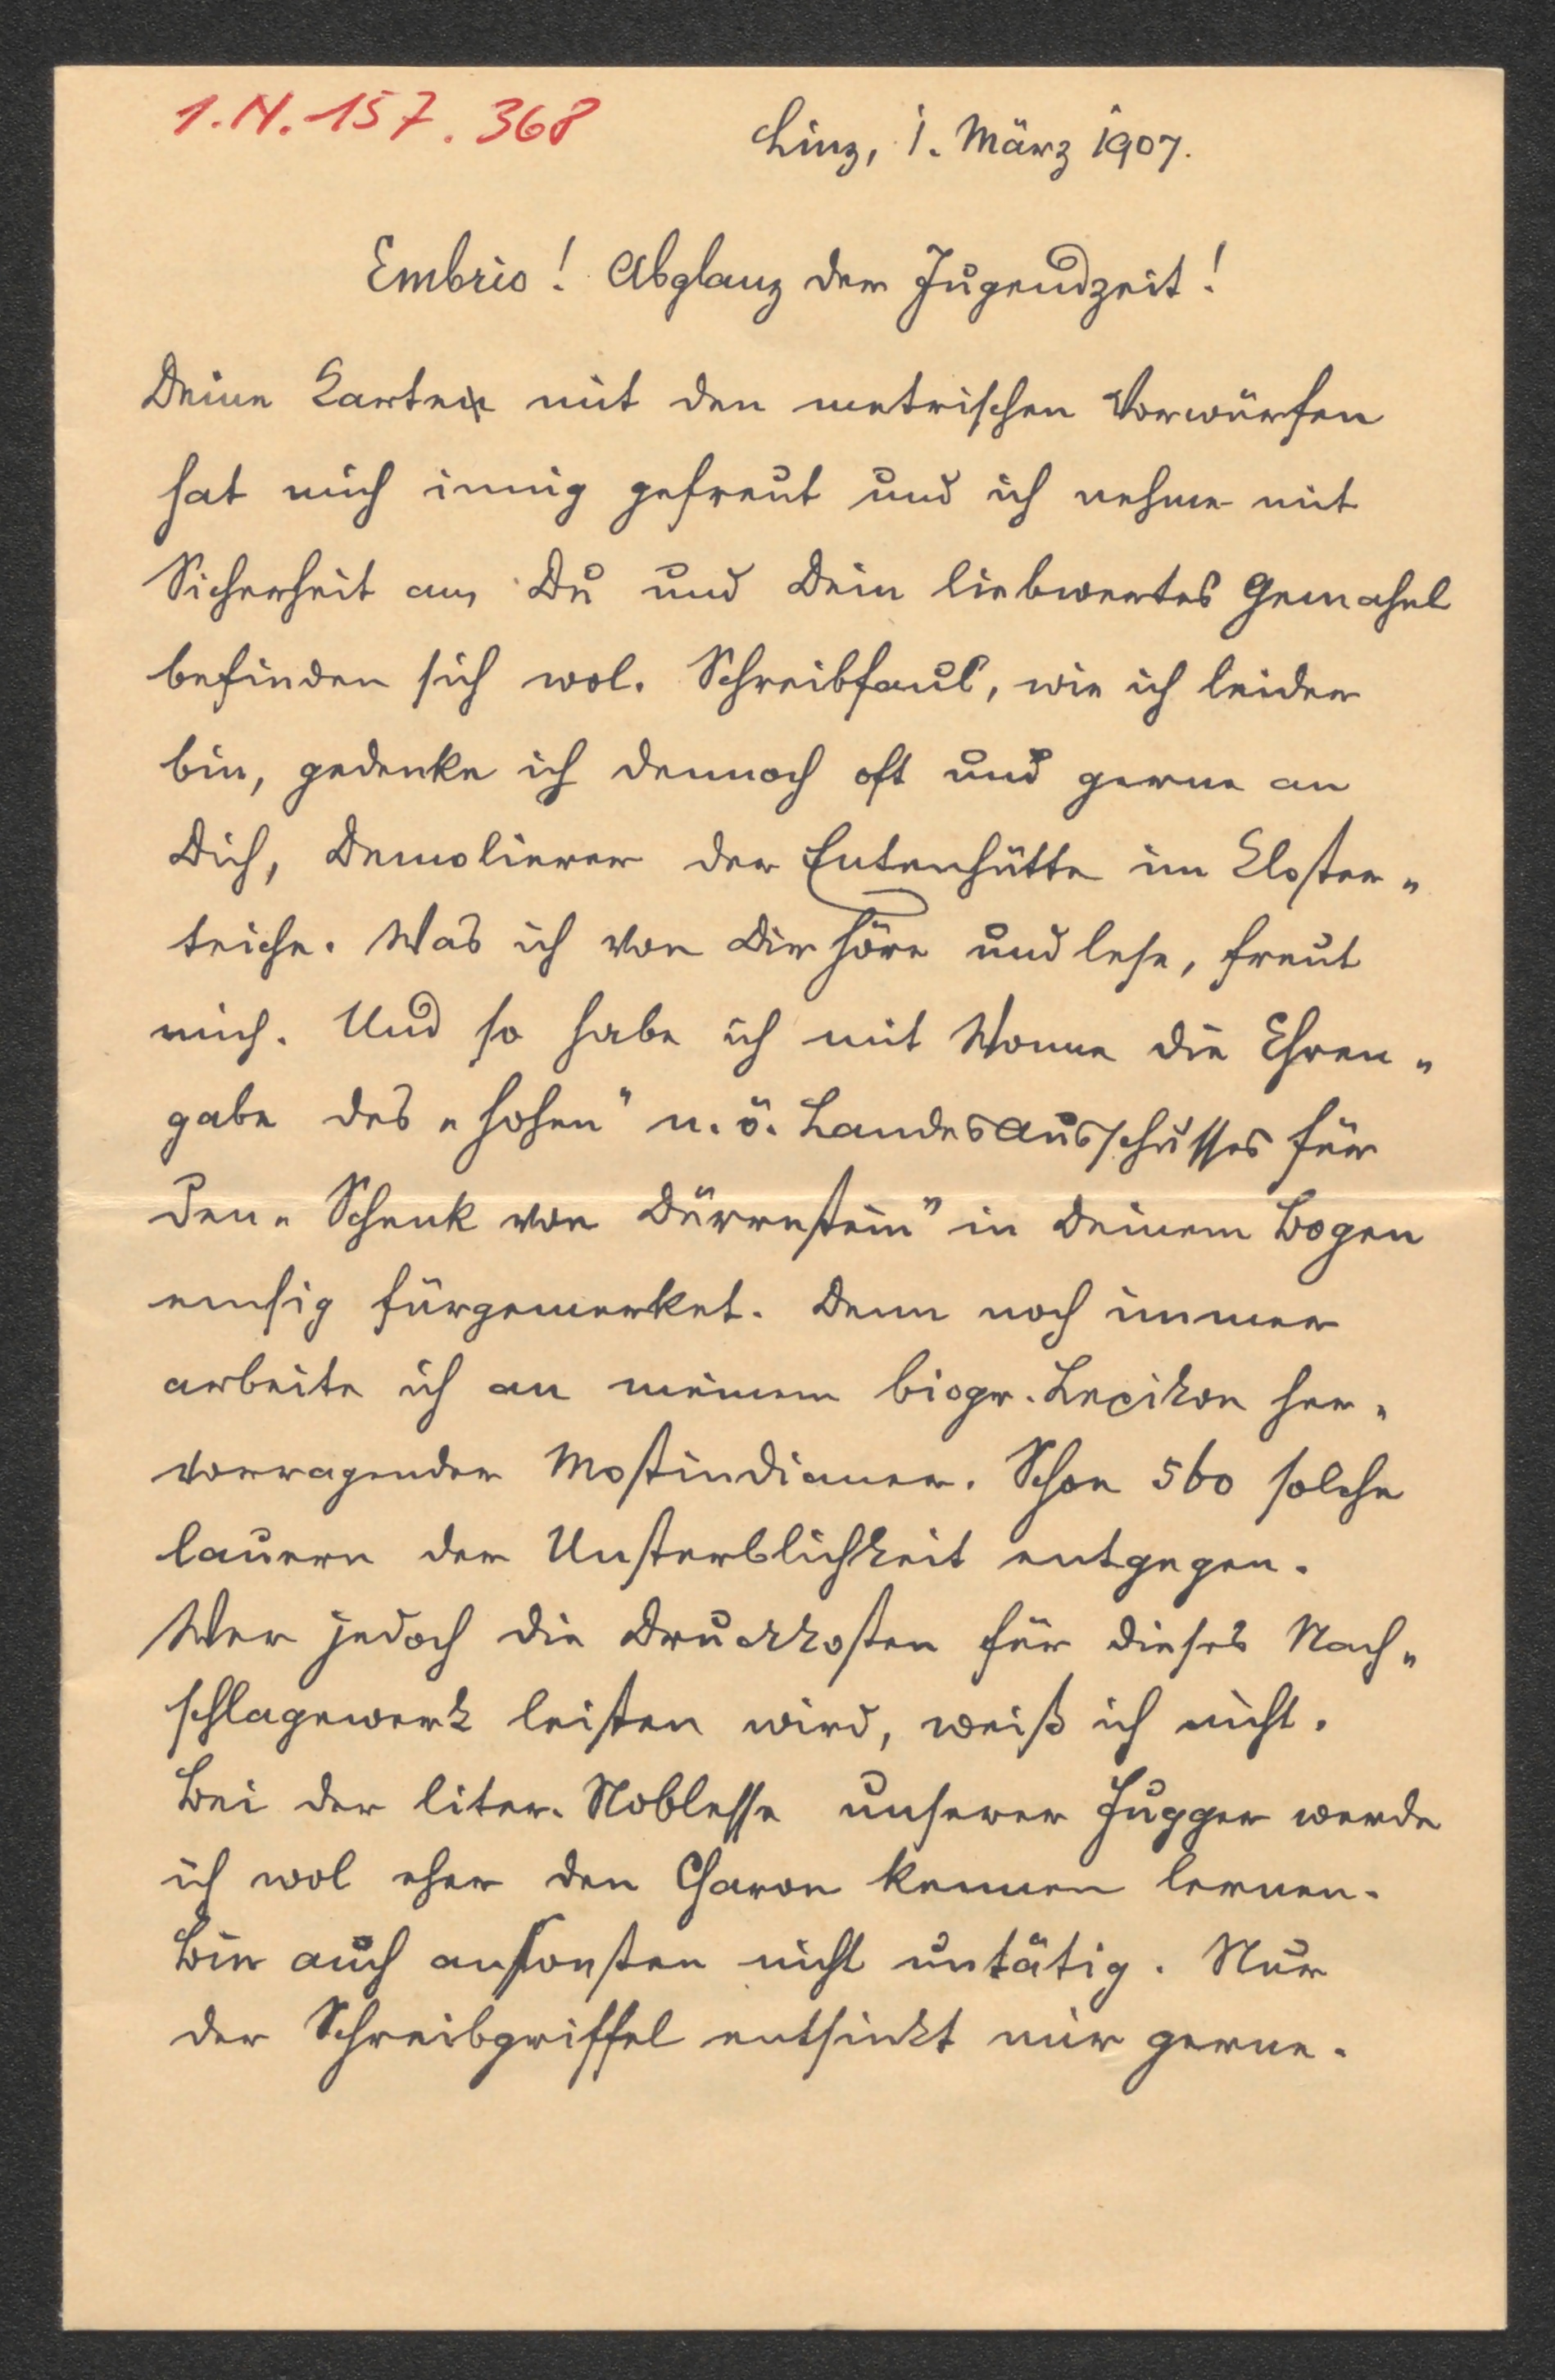 1.N.157.368
Linz, 1. März 1907.
Embrio! Abglanz der Jugendzeit!
Deine Karte mit den metrischen Vorwürfen
hat mich innig gefreut und ich nehme mit
Sicherheit an, Du und Dein liebwertes Gemahel
befinden sich wol. Schreibfaul, wie ich leider
bin, gedenke ich dennoch oft und gerne an
Dich, Demolierer der Entenhütte im Kloster„
teiche. Was ich von Dir höre und lese, freut
mich. Und so habe ich mit Wonne die Ehren„
gabe des „hohen" n. ö. Landesausschusses für
den „Schenk von Dürrnstein" in Deinem Bogen
emsig fürgemerket. Denn noch immer
arbeite ich an meinem biogr. Lexikon her„
vorragender Mostindianer. Schon 560 solche
lauern der Unsterblichkeit entgegen.
Wer jedoch die Druckkosten für dieses Nach„
schlagewerk leisten wird, weiß ich nicht.
Bei der liter. Noblesse unserer Fugger werde
ich wol eher den Charon kennen lernen.
Bin auch ansonsten nicht untätig. Nur
der Schreibgriffel entsinkt mir gerne.